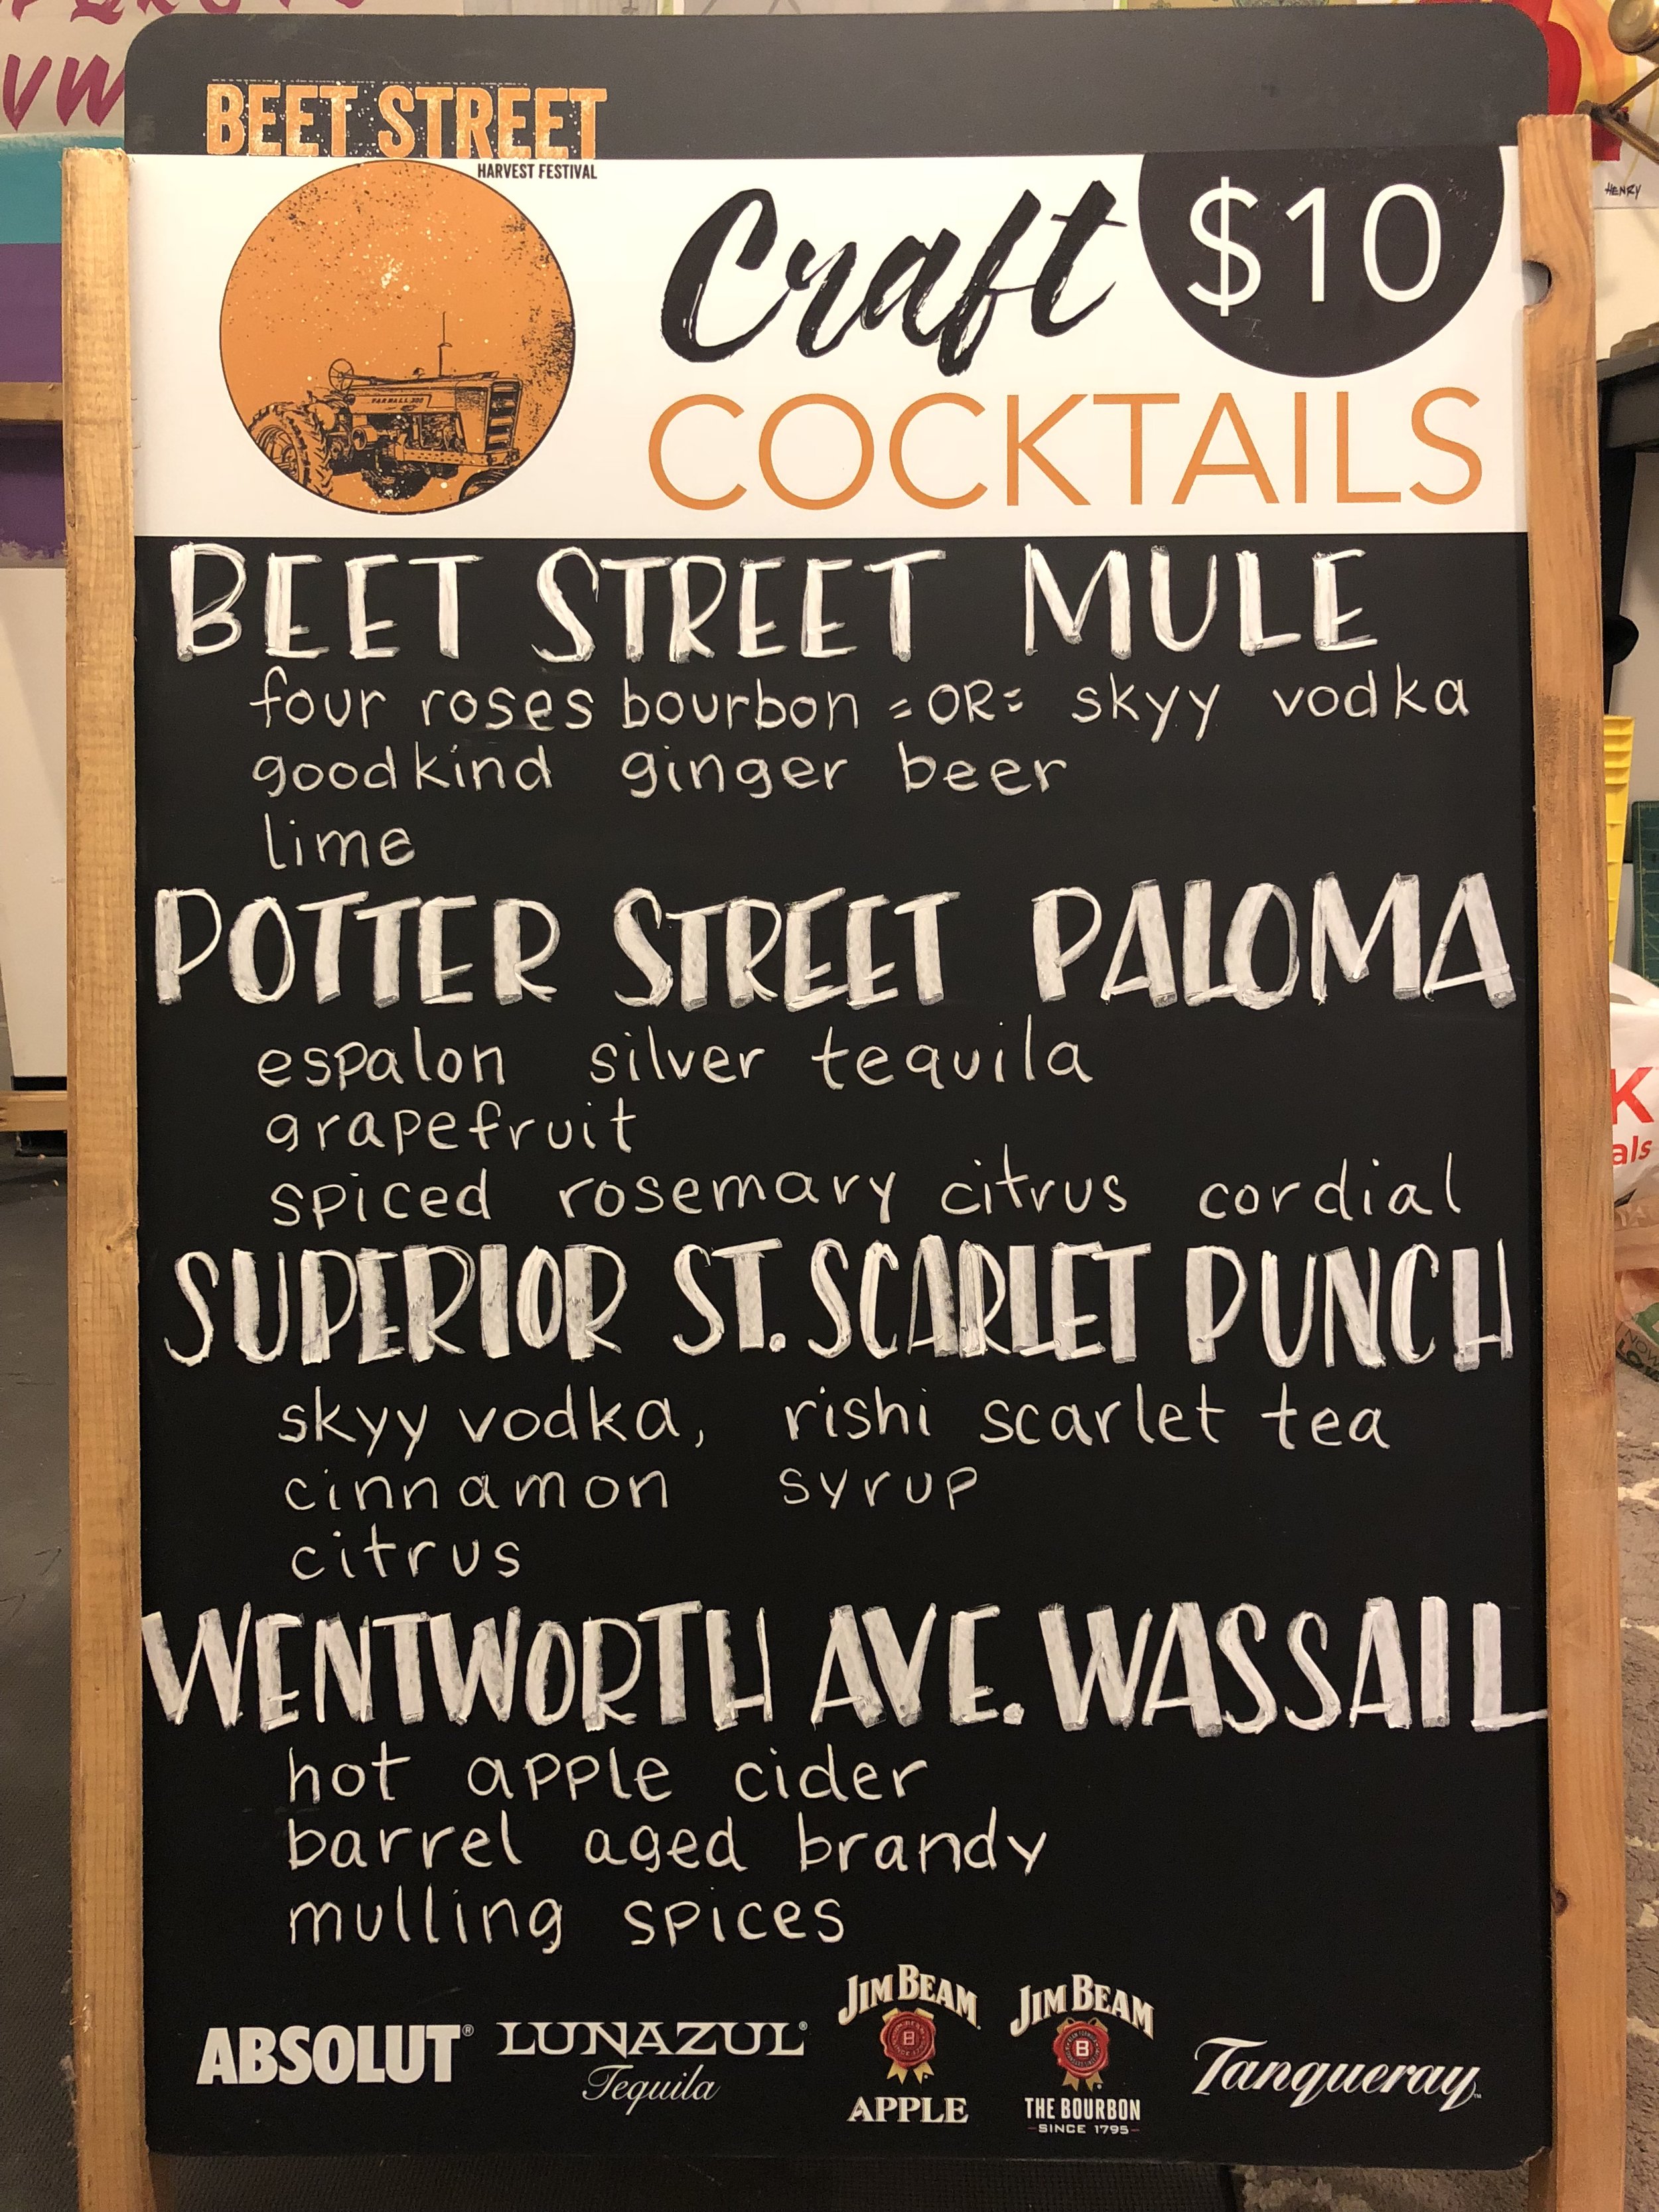 VW
BEET STREET
HARVEST FESTIVAL
HENRY
Craft
$10
COCKTAILS
FARMALL 300
BEET STREET MULE
four roses bourbon =OR= skyy vodka
goodkind ginger beer
lime
POTTER STREET PALOMA
espalon silver tequila
grapefruit
spiced rosemary citrus cordial
SUPERIOR ST. SCARLET PUNCH
skyy vodka, rishi scarlet tea
cinnamon syrup
citrus
WENTWORTH AVE. WASSAIL
hot apple cider
barrel aged brandy
mulling spices
ABSOLUT®
LUNAZUL®
Tequila
JIM BEAM
B
APPLE
JIM BEAM
B
THE BOURBON
SINCE 1795
Tanqueray™
K
als